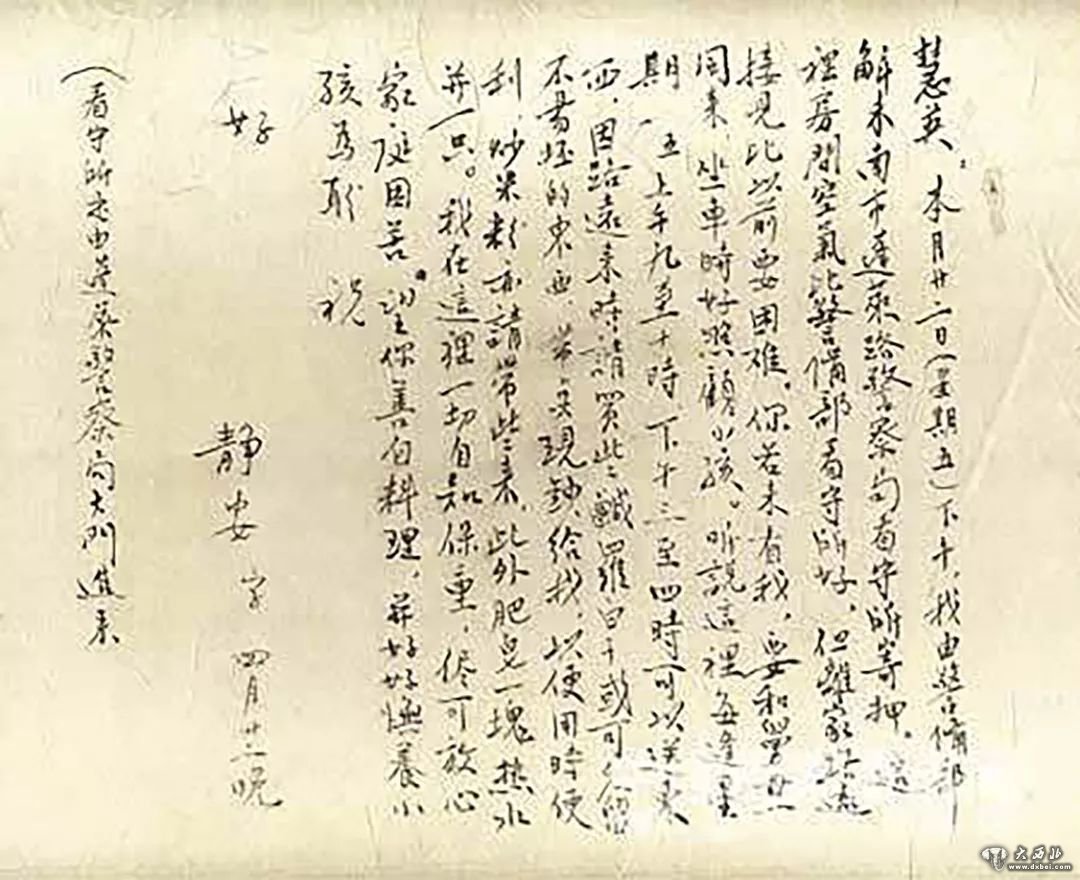 慧英：本月廿二日（星期五）下午，我由警備部
解来南市蓬萊路警察局看守所寄押。這
裡房間空氣比警備部看守所好，但離家路遠
接見比以前要困難。你若来看我，要和舅母
同来，坐車時好照顧小孩。听說這裡每逢星
期一、五上午九至十時下午三至四時可以送東
西，因路遠来時請買些鹹羅卜干或可久留
不易坯的東西，带点現鈔給我，以便用時便
利，炒米粉亦請帶些来，此外肥皂一塊热水
瓶一只。我在這理一切自知保重，侭可放心
家庭困苦，望你善自料理，并好好撫養小
孩為盼 祝
好
静安字 四月廿二晚
（看守所是由蓬萊警察局大門進来
大西北
www.dxbei.com